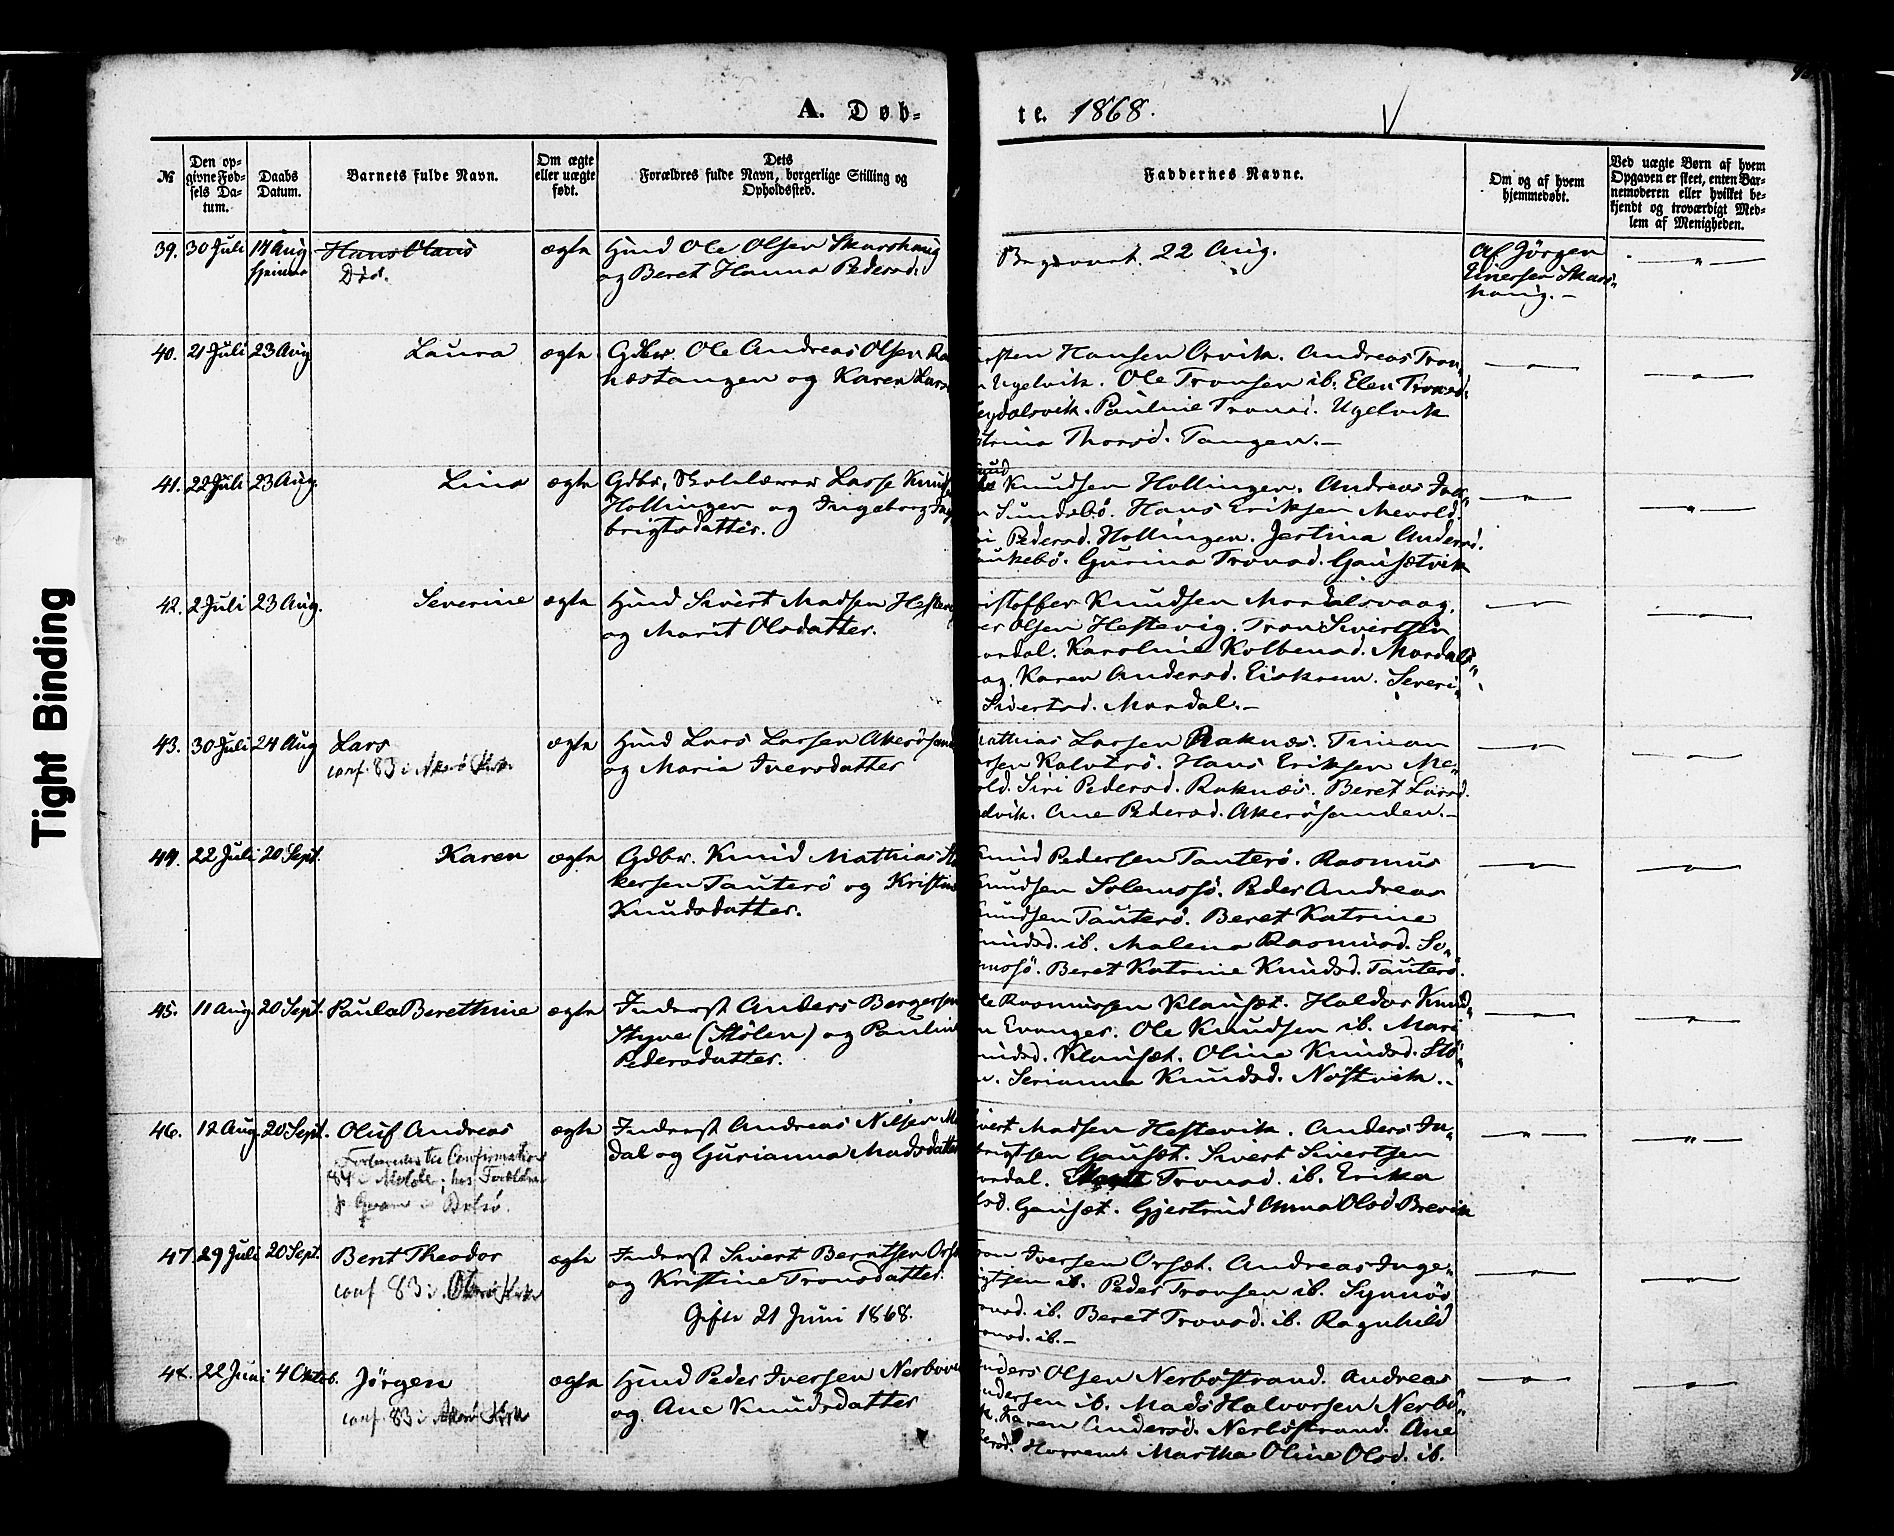 Tight Binding
A. Døb-
te. 1868.
№
Den op-
givne Fød-
sels Da-
tum.
Daabs
Datum.
Barnets fulde Navn.
Om ægte
eller uægte
født.
Dets
Forældres fulde Navn, borgerlige Stilling og
Opholdssted.
Faddernes Navne.
Om og af hvem
hjemmedøbt.
Ved uægte Børn af hvem
Opgaven er skeet, enten Bar-
nemoderen eller hvilket be-
kjendt og troværdigt Med-
lem af Menigheden.
39. 30 Juli 14 Aug Hans Olaus ægte Hmd Ole Olsen Skarshaug
hjemme Död. og Beret Hanna Pedersd.
Begravet. 22 Aug.
Af Jörgen
Einersen Skars-
haug.
40. 21 Juli 23 Aug Laura ægte Gdbr. Ole Andreas Olsen
næstangen og Karen Lars
Hansen Orvik. Andreas Tron-
Ugelvik. Ole Tronsen ib. Elen Tronsd.
Pauline Tronsd. Ugelvik
Thorsd. Tangen.
41. 22 Juli 23 Aug. Lina ægte Gdbr, Skolelærer Lasse Knuds
Hollingen og Ingeborg Inge
brigtsdatter.
Knudsen Hollingen. Andreas
Sundsbö. Hans Eriksen Mevold.
Pedersd. Hollingen. Jertina Andersd.
Gurina Tronsd. Gausætvik
42. 2 Juli 23 Aug. Severine ægte Hmd Sivert Madsen Hestevig
og Marit Olsdatter.
istoffer Knudsen Mordalsvaag.
Olsen Hestevig. Tron Sivertsen
ordal. Karoline Kolbensd. Mordals-
ag. Karen Andersd. Eiskrem. Severi-
Sivertsd. Mordal.
43. 30 Juli 24 Aug Lars ægte Hmd Lars Larsen Akerösand
conf. 83 i Akerö Kirke og Maria Iversdatter
athias Larsen Raknæs. Timan
Kalvtrö. Hans Eriksen Me-
old. Siri Pedersd. Raknæs. Beret Larsd.
dvik. Ane Pedersd. Akerösanden.
44. 22 Juli 20 Sept. Karen ægte Gdbr. Knud Mathias
kersen Tauterö og Kristine
Knudsdatter.
Knud Pedersen Tauterö. Rasmus
Knudsen Solemsö. Peder Andreas
Knudsen Tauterö. Beret Katrine
Knudsd. ib. Malena Rasmusd. So-
lemsö. Beret Katrine Knudsd. Tauterö.
45. 11 Aug 20 Sept. Paula Berethine ægte Inderst Anders Bergersen
Styve (Stölen) og Pauline
Pedersdatter.
Ole Rasmussen Klausæt. Haldor Knud-
Evanger. Ole Knudsen ib. Mari
Knudsd. Klausæt. Oline Knudsd. Stö-
Serianna Knudsd. Nöstvik.
46. 12 Aug 20 Sept. Oluf Andreas ægte Inderst Andreas Nilsen
Forberedes til Confirmation dal og Gurianna Madsdatter
84 i Molde; hos Forældre
i Bolsö.
ivert Madsen Hestevik. Anders In-
brigtsen Gausæt. Sivert Sivertsen
ordal. Tronsd. ib. Erika
Gausæt. Gjertrud Anna Olsd Brevik
47. 29 Juli 20 Sept. Bent Theodor ægte Inderst Sivert Berntsen Ors
conf 83 i Akerö Kirke og Kristine Tronsdatter.
Gifte 21 Juni 1868.
Iversen Orsæt. Andreas Inge-
igtsen ib. Peder Tronsen ib. Synnös
onsd. ib. Beret Tronsd. ib. Ragnhild
onsd. ib.
48. 22 Juni 4 Oktob. Jörgen ægte Hmd Peder Iversen Nerbo
conf. 83 i Akerö Kirke og Ane Knudsdatter
nders Olsen Nerböstrand. Andreas
ndersen ib. Mads Halvorsen Nerbö-
Karen Andersd. Nerböstrand. Ane
Harremt Martha Oline Olsd. ib.